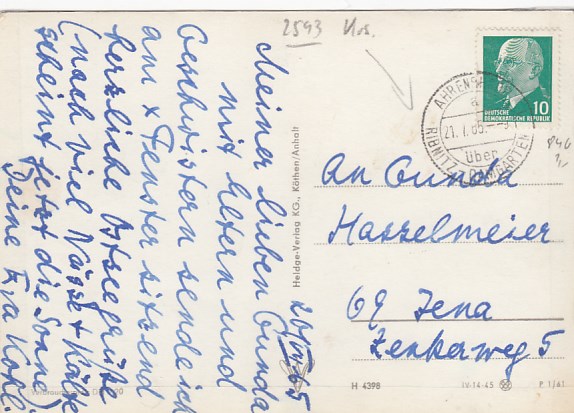 2593 Kvs.
Meiner lieben Gunda
mit Eltern und
Geschwistern sende ich
am x Fenster sitzend
herzliche Ostseegrüße
(nach viel Nässe + Kälte
scheint jetzt die Sonne)
Deine Eva Kohl
20/VII 65
Heldge-Verlag KG., Köthen/Anhalt
10
DEUTSCHE
DEMOKRATISCHE REPUBLIK
AHRENSHOOP
a
21.7.65
über
RIBNITZ - DAMGARTEN
An Gunda
Hasselmeier
69 Jena
Zenkerweg 5
H 4398
IV-14-45
P 1/61